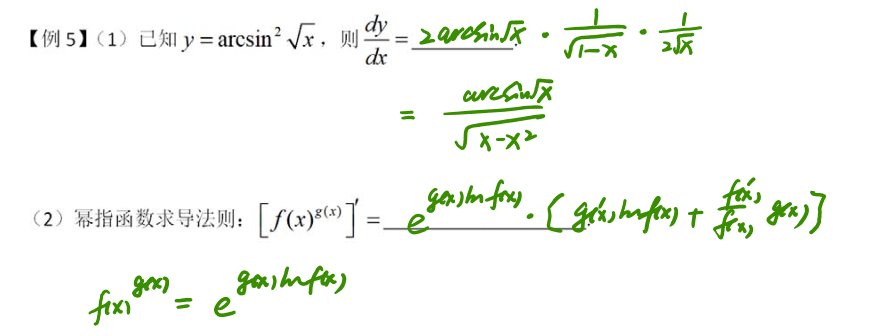 【例 5】(1) 已知 y = arcsin² √x，则 dy/dx = 2arcsin√x · 1/√(1-x) · 1/(2√x)
= arcsin√x / √(x-x²)
(2) 幂指函数求导法则：[f(x)^g(x)]′ = e^(g(x)lnf(x)) · [g′(x)lnf(x) + f′(x)/f(x) g(x)]
f(x)^g(x) = e^(g(x)lnf(x))